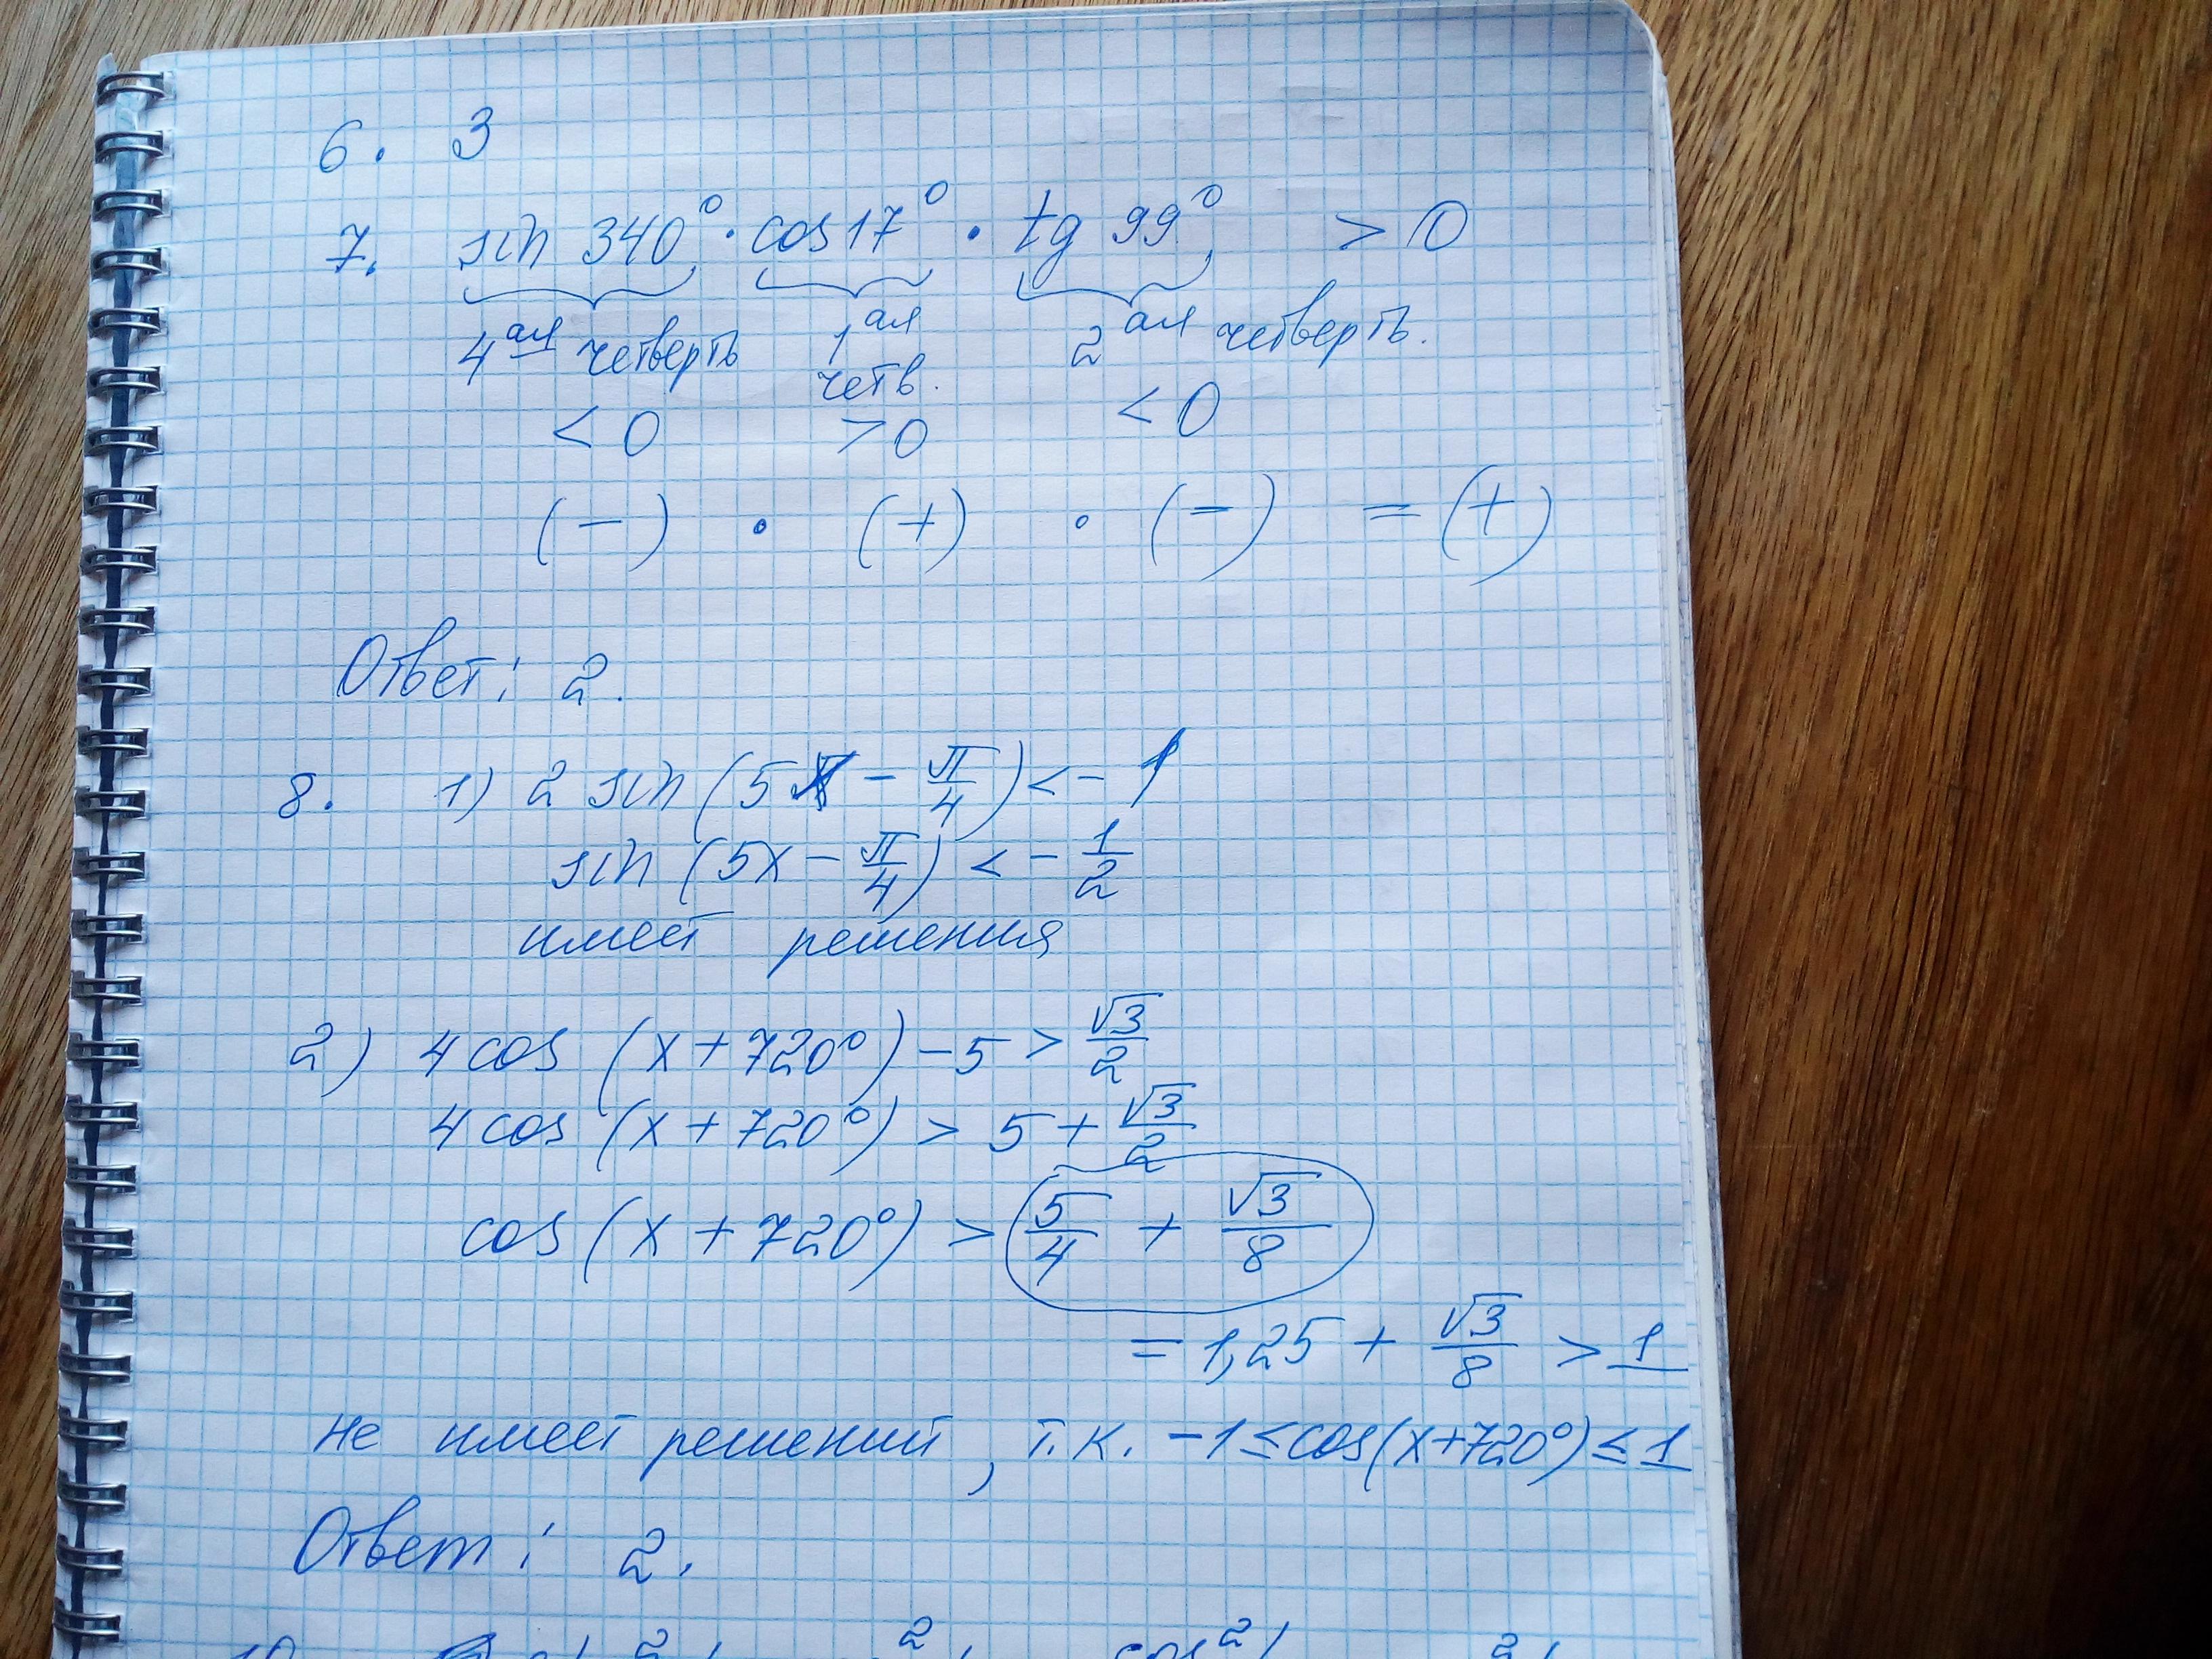 6. 3
7. sin 340° · cos 17° · tg 99° > 0
4ая четверть 1ая четв. 2ая четверть.
< 0 > 0 < 0
(−) · (+) · (−) = (+)
Ответ: 2.
8. 1) 2 sin (5x − π/4) < − 1
sin (5x − π/4) < − 1/2
имеет решения
2) 4 cos (x + 720°) − 5 > √3/2
4 cos (x + 720°) > 5 + √3/2
cos (x + 720°) > 5/4 + √3/8
= 1,25 + √3/8 > 1
не имеет решений, т.к. −1 ≤ cos(x+720°) ≤ 1
Ответ: 2.